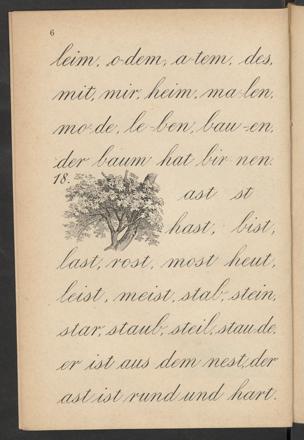 6
leim, o-dem, a-tem, des,
mit, mir, heim, ma-len,
mo-de, le-ben, bau-en,
der baum hat bir-nen.
18.
ast st
hast, bist,
last, rost, most heut,
leist, meist, stab, stein,
star, staub, steil, stau-de,
er ist aus dem nest, der
ast ist rund und hart.